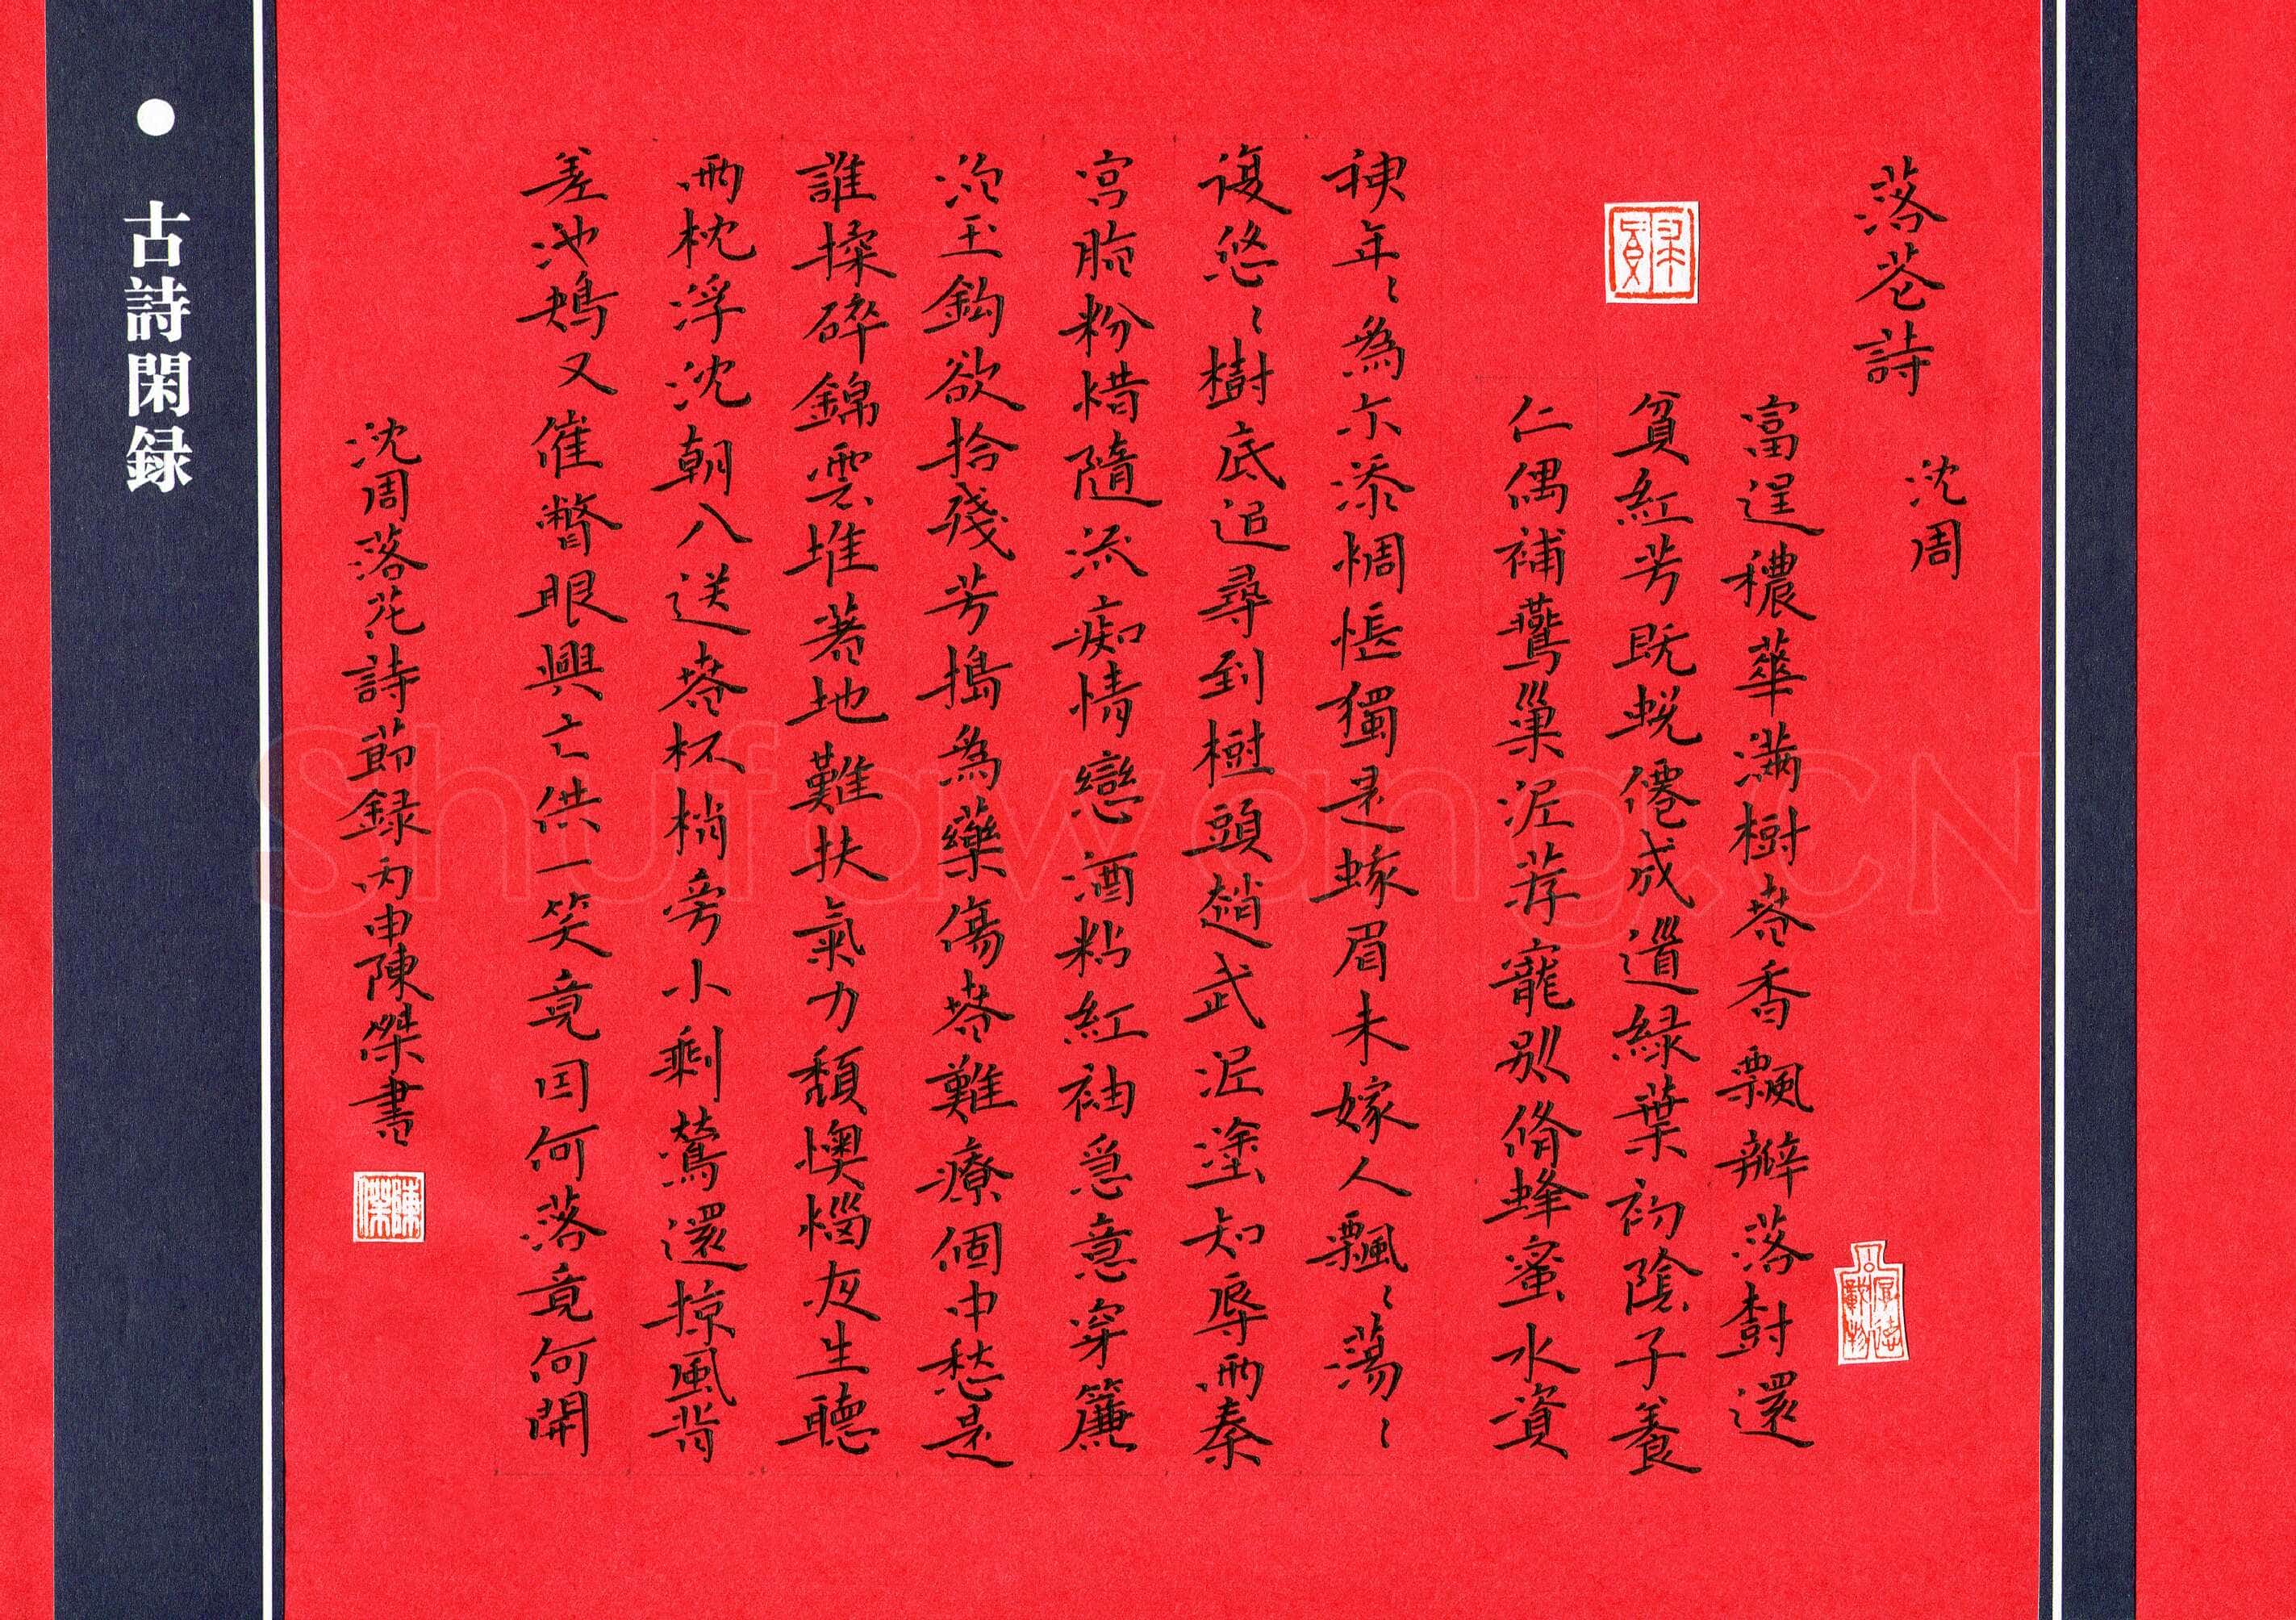 落花詩
沈周
富逞穠華滿樹春香飄瓣落樹還
貧紅芳既蛻僊成道綠葉初陰子養
仁偶補鶯巢泥荐寵別脩蜂蜜水資
神年〻為尒添惆悵獨是蛾眉未嫁人飄〻蕩〻
復悠〻樹底追尋到樹頭趙武泥塗知辱雨秦
宮脂粉惜隨流痴情戀酒粘紅袖急意穿簾
泥玉鈎欲拾殘芳搗為藥傷春難療個中愁是
誰揉碎錦雲堆著地難扶氣力頹懊惱夜生聽
雨枕浮沈朝入送春杯梢旁小剩鶯還掠風背
差池鴆又催瞥眼興亡供一笑竟因何落竟何開
沈周落花詩節録丙申陳傑書
陳傑
厚德載物
● 古詩閑録
Shufawang.CN